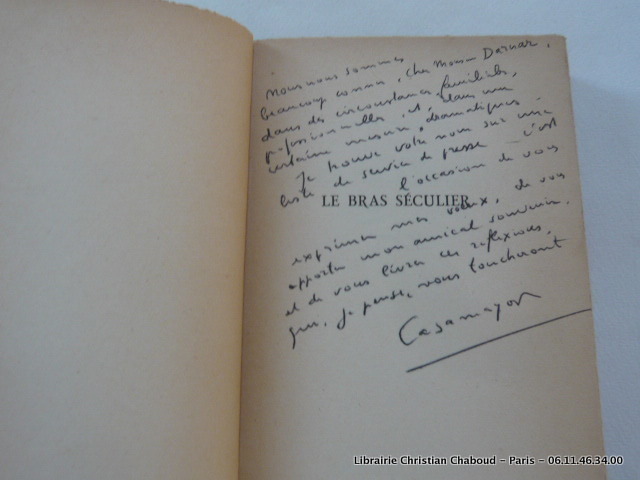 Nous nous sommes
beaucoup connus, cher Monsieur Darnar,
dans des circonstances familiales,
professionnelles et, dans une
certaine mesure, dramatiques
Je trouve votre nom sur une
liste de service de presse – c'est
l'occasion de vous
LE BRAS SÉCULIER
exprimer mes vœux, de vous
apporter mon amical souvenir
et de vous livrer ces réflexions,
qui, je pense, vous toucheront
Casamayor
Librairie Christian Chaboud – Paris – 06.11.46.34.00